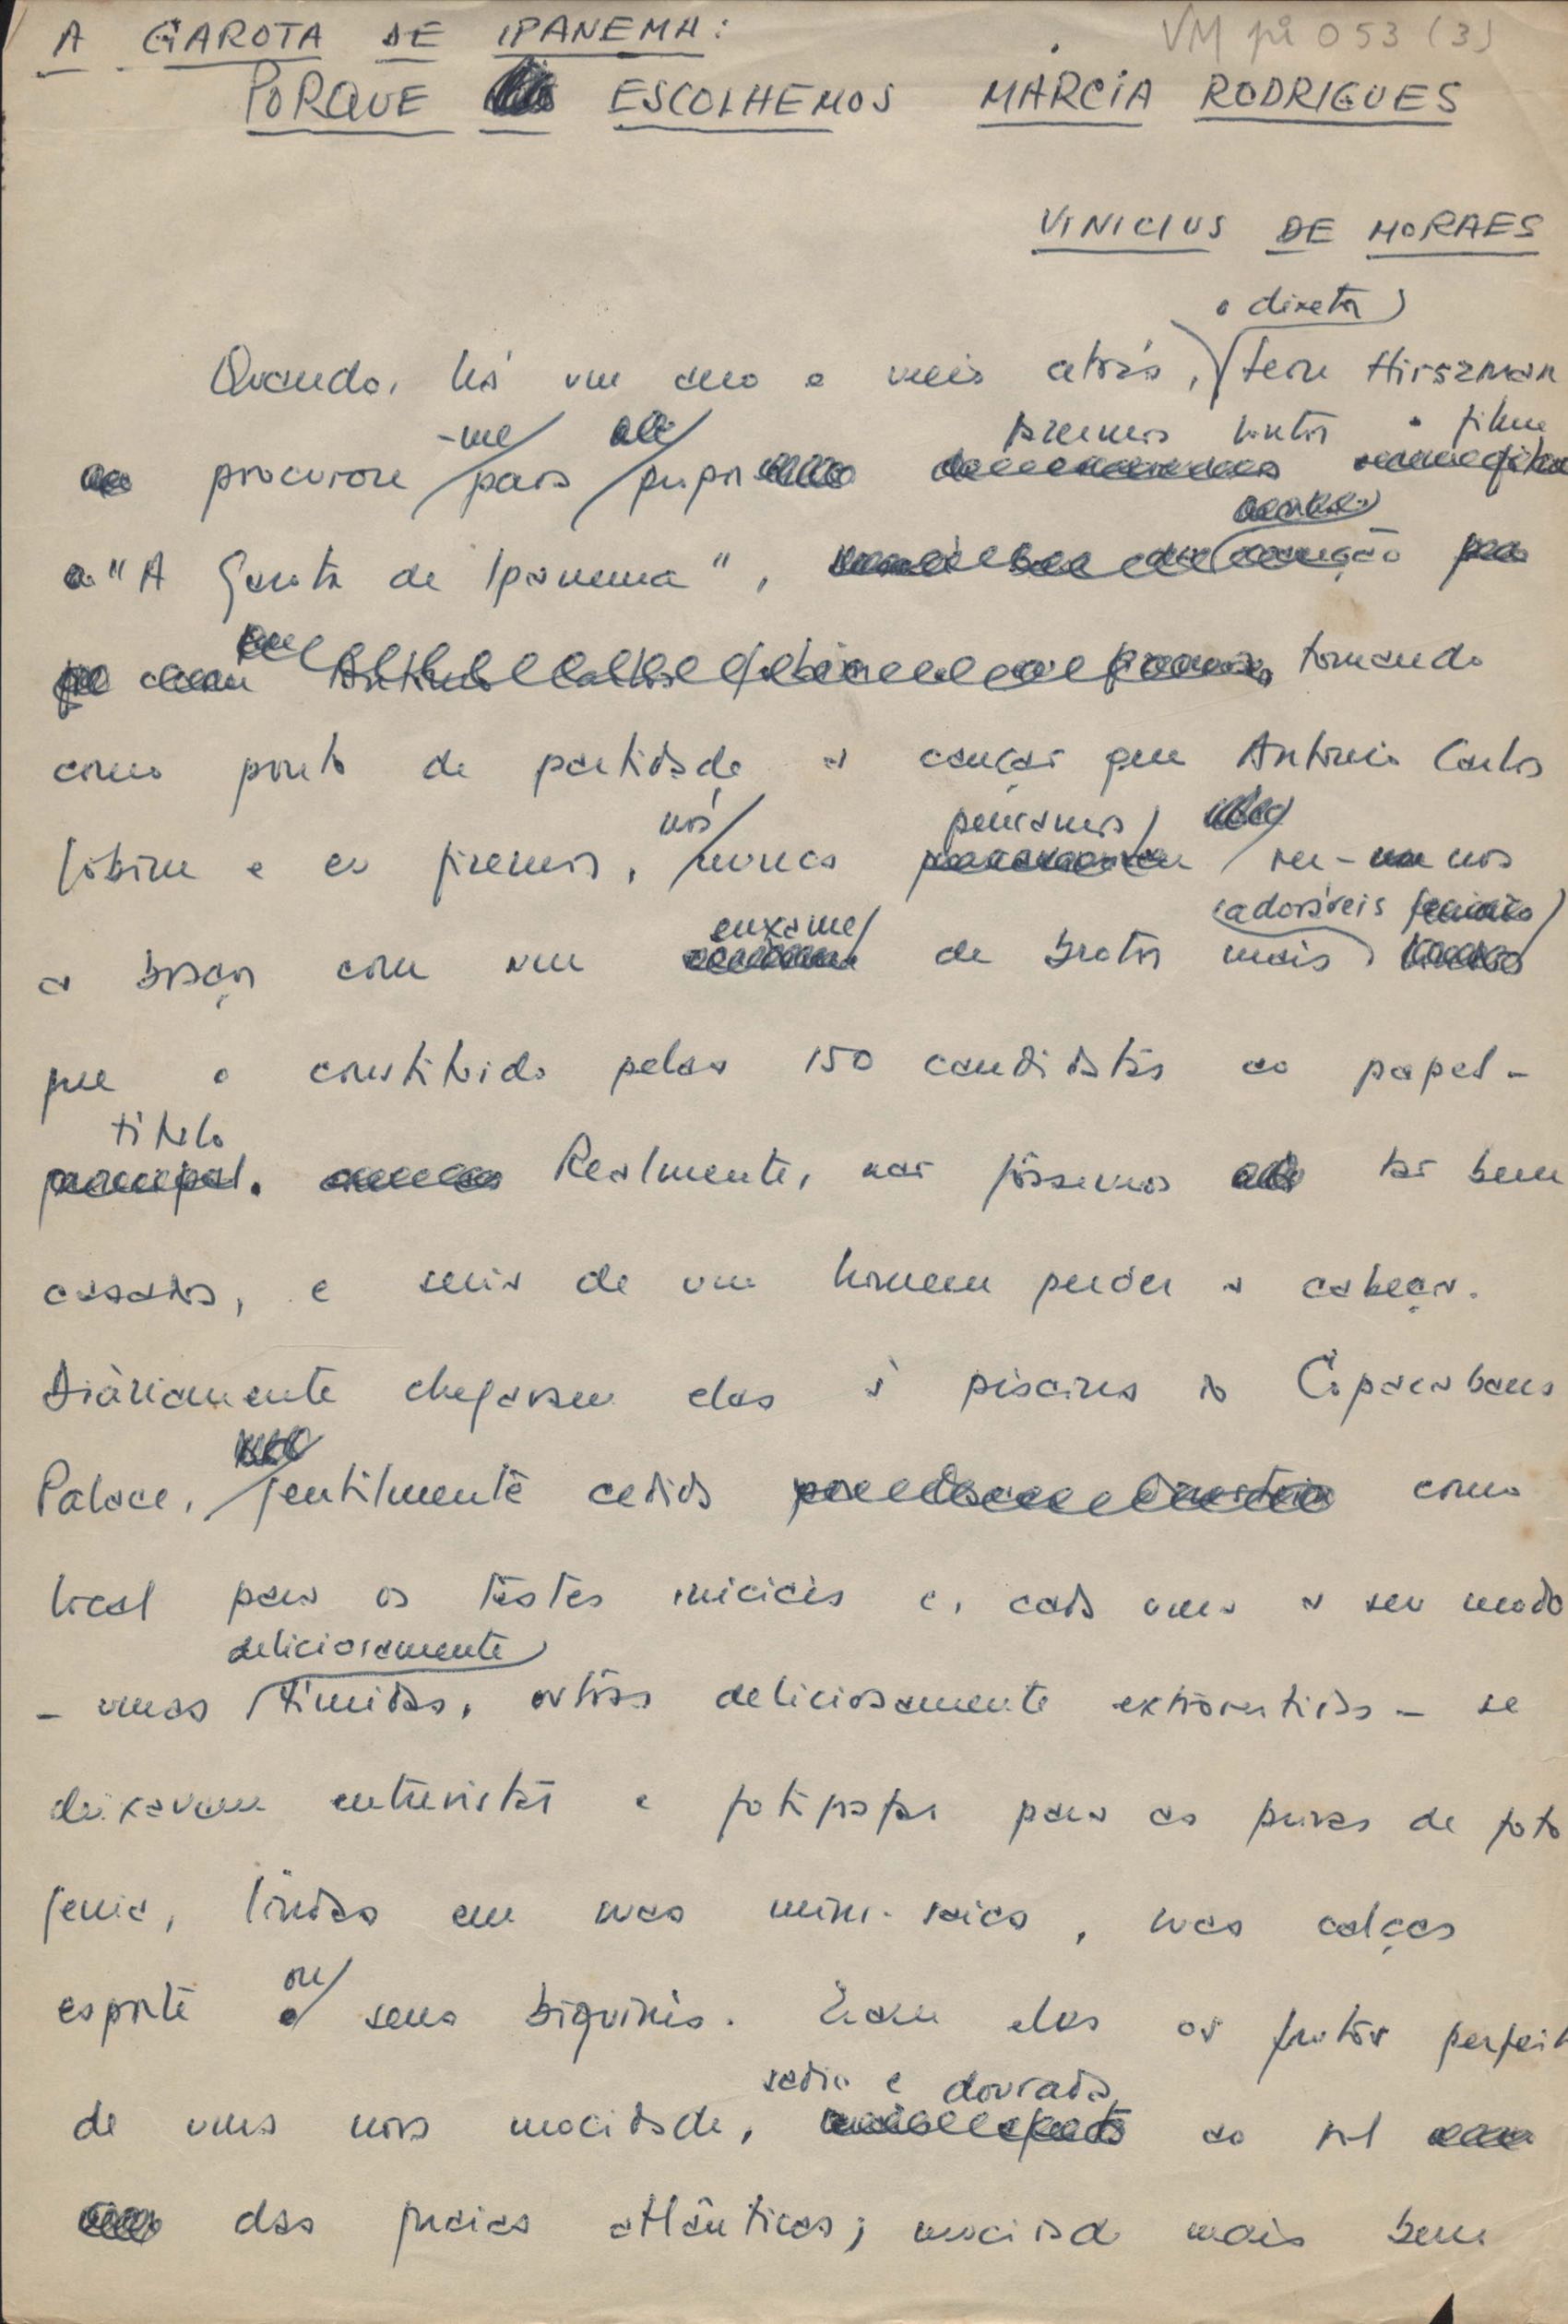 A GAROTA DE IPANEMA:
VM pi 053 (3)
PORQUE ESCOLHEMOS MÁRCIA RODRIGUES
VINICIUS DE MORAES
o diretor
Quando, há um ano e meio atrás, Leon Hirszman
-me fazermos juntos o filme
procurou para propor
"A Garota de Ipanema",
tomando
como ponto de partida a canção que Antonio Carlos
nós pensamos
Jobim e eu fizemos, nunca ver-nos
enxame adoráveis
a braços com um de brotos mais
que o constituído pelas 150 candidatas ao papel-
título
principal. Realmente, não fôssemos tão bem
casados, e seria de um homem perder a cabeça.
Diàriamente chegavam elas à piscina do Copacabana
Palace, gentilmente cedida como
local para os testes iniciais e, cada uma a seu modo
deliciosamente
- umas tímidas, outras deliciosamente extrovertidas - se
deixavam entrevistar e fotografar para as provas de foto
genia, lindas em suas mini-saias, suas calças
ou
esporte seus biquinis. Eram elas os frutos perfeit
sadia e dourada
de uma nova mocidade, ao sol
das praias atlânticas; mocidade mais bem